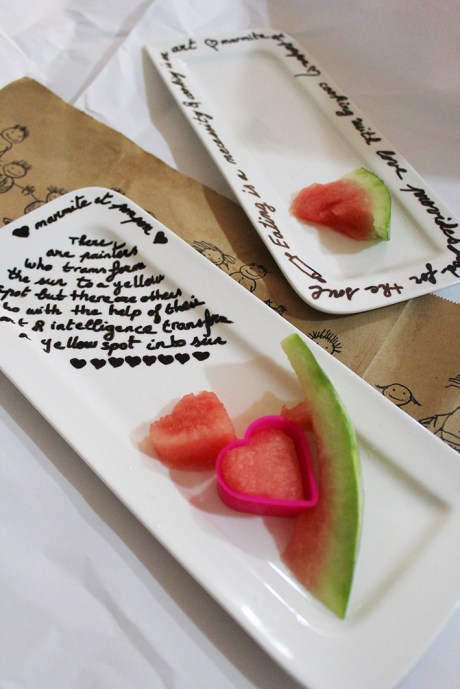 ♥ marmite et ponpon ♥
There
are painters
who transform
the sun to a yellow
spot but there are others
who with the help of their
art & intelligence transform
a yellow spot into sun
♥♥♥♥♥♥♥♥
art ♥ marmite et ponpon ♥ cooking with love
food for
the soul
Eating is a necessity & cooking is